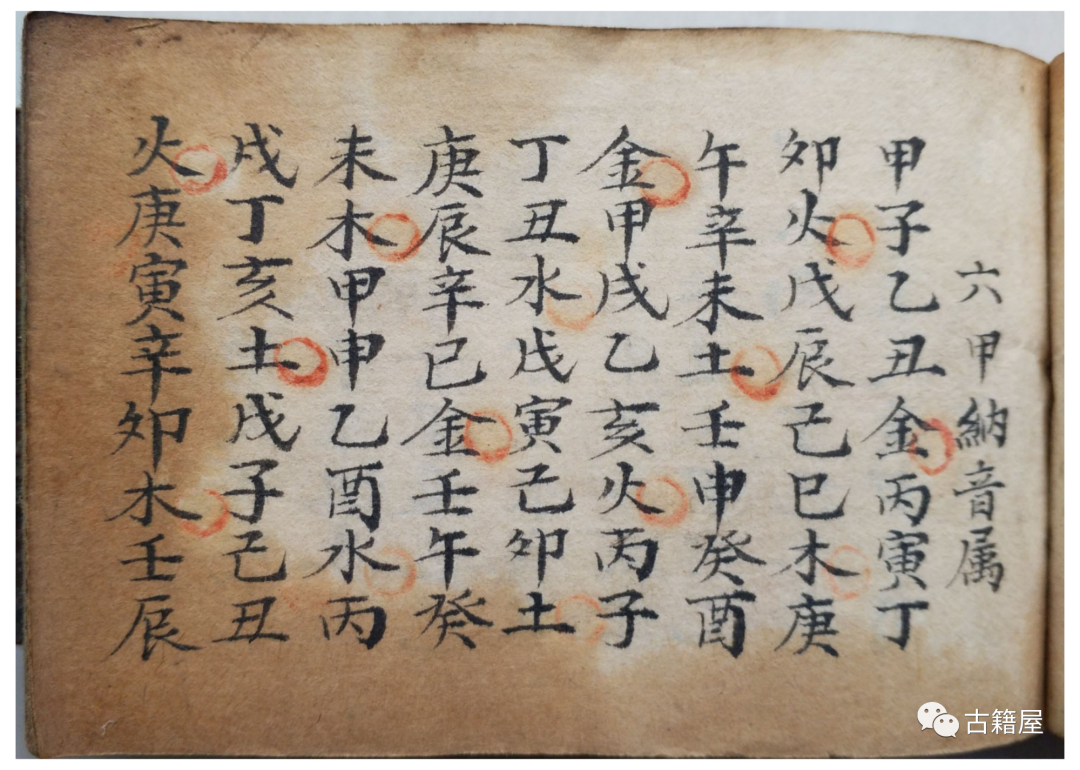 六甲納音属
甲子乙丑金丙寅丁
卯火戊辰己巳木庚
午辛未土壬申癸酉
金甲戌乙亥火丙子
丁丑水戊寅己卯土
庚辰辛巳金壬午癸
未木甲申乙酉水丙
戌丁亥土戊子己丑
火庚寅辛卯木壬辰
古籍屋